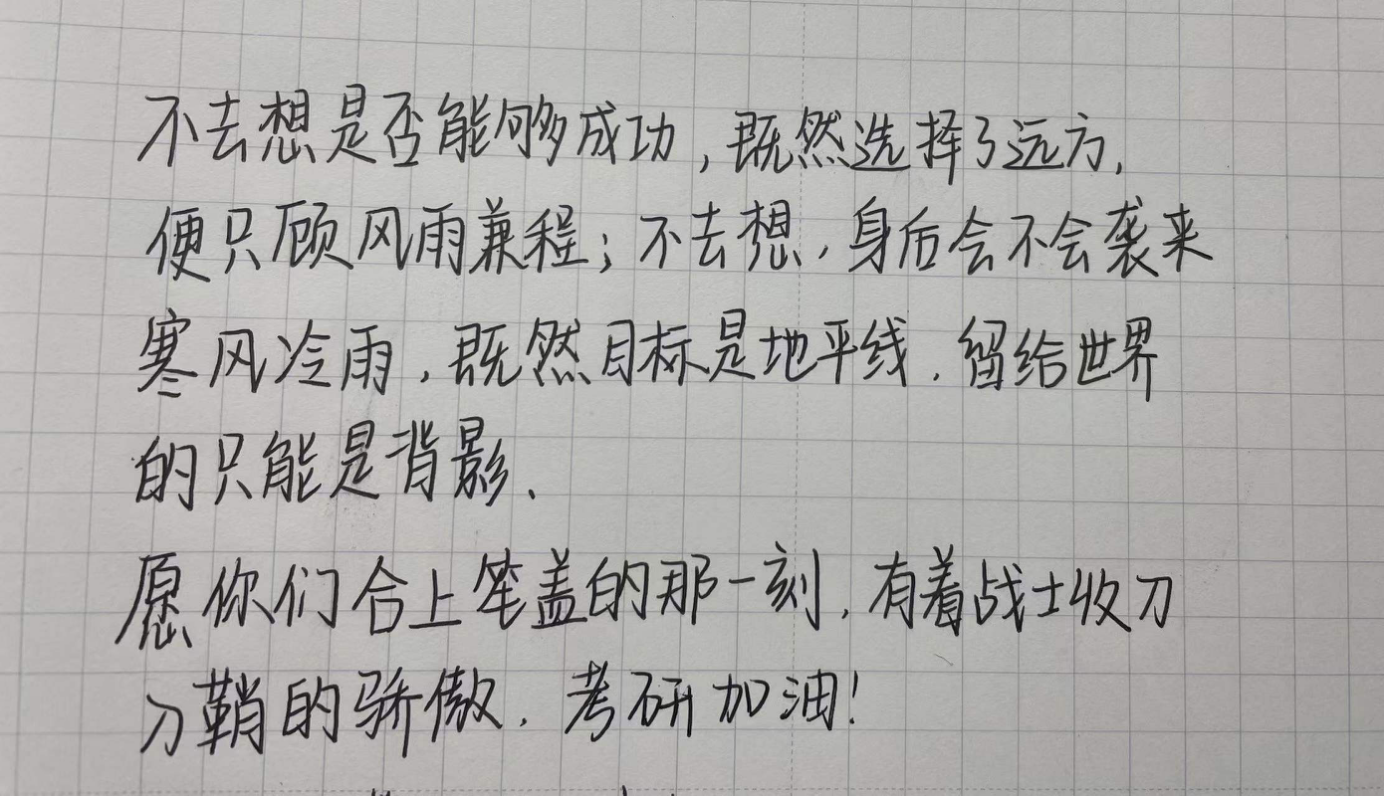 不去想是否能够成功，既然选择了远方，
便只顾风雨兼程；不去想，身后会不会袭来
寒风冷雨，既然目标是地平线，留给世界
的只能是背影、
愿你们合上笔盖的那一刻，有着战士收刀
刀鞘的骄傲，考研加油！